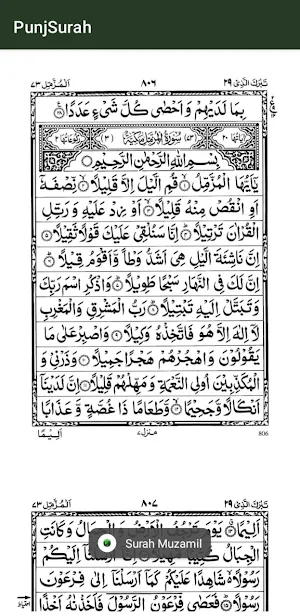 PunjSurah
تبٰرك الذی ۲۹
۸۰۶
المزّمّل ۷۳
بِمَا لَدَيْهِمْ وَاَحْصٰى كُلَّ شَىْءٍ عَدَدًا
سُوْرَةُ الْمُزَّمِّلِ مَكِّيَّةٌ
بِسْمِ اللّٰهِ الرَّحْمٰنِ الرَّحِيْمِ
يٰٓاَيُّهَا الْمُزَّمِّلُ ۙ‏ قُمِ الَّيْلَ اِلَّا قَلِيْلًا ۙ‏ نِّصْفَهٗٓ
اَوِ انْقُصْ مِنْهُ قَلِيْلًا ۙ‏ اَوْ زِدْ عَلَيْهِ وَرَتِّلِ
الْقُرْاٰنَ تَرْتِيْلًا ؕ‏ اِنَّا سَنُلْقِىْ عَلَيْكَ قَوْلًا ثَقِيْلًا
اِنَّ نَاشِئَةَ الَّيْلِ هِىَ اَشَدُّ وَطْاً وَّاَقْوَمُ قِيْلًا ؕ‏
اِنَّ لَكَ فِى النَّهَارِ سَبْحًا طَوِيْلًا ؕ‏ وَاذْكُرِ اسْمَ رَبِّكَ
وَتَبَتَّلْ اِلَيْهِ تَبْتِيْلًا ؕ‏ رَبُّ الْمَشْرِقِ وَالْمَغْرِبِ
لَاۤ اِلٰهَ اِلَّا هُوَ فَاتَّخِذْهُ وَكِيْلًا وَاصْبِرْ عَلٰى مَا
يَقُوْلُوْنَ وَاهْجُرْهُمْ هَجْرًا جَمِيْلًا وَذَرْنِىْ وَ
الْمُكَذِّبِيْنَ اُولِى النَّعْمَةِ وَمَهِّلْهُمْ قَلِيْلًا اِنَّ لَدَيْنَاۤ
اَنْكَالًا وَّجَحِيْمًا ۙ‏ وَّطَعَامًا ذَا غُصَّةٍ وَّعَذَابًا
اَلِيْمًا
منزل ۷
806
تبٰرك الذی ۲۹
۸۰۷
المزّمّل ۷۳
اَلِيْمًا يَوْمَ تَرْجُفُ الْاَرْضُ وَالْجِبَالُ وَكَانَتِ
الْجِبَالُ كَثِيْبًا مَّهِيْلًا اِنَّاۤ اَرْسَلْنَاۤ اِلَيْكُمْ
Surah Muzamil
رَسُوْلًا ۙ شَاهِدًا عَلَيْكُمْ كَمَاۤ اَرْسَلْنَاۤ اِلٰى فِرْعَوْنَ
رَسُوْلًا ؕ‏ فَعَصٰى فِرْعَوْنُ الرَّسُوْلَ فَاَخَذْنٰهُ اَخْذًا